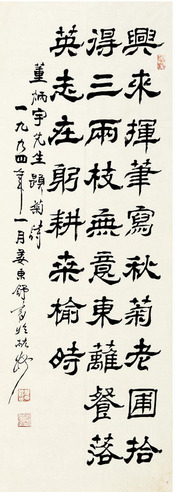 興來揮筆寫秋菊老圃拾
得三兩枝無意東籬餐落
英志在躬耕桑榆時
董炳宇先生題菊詩
一九九四年十一月姜東舒書於